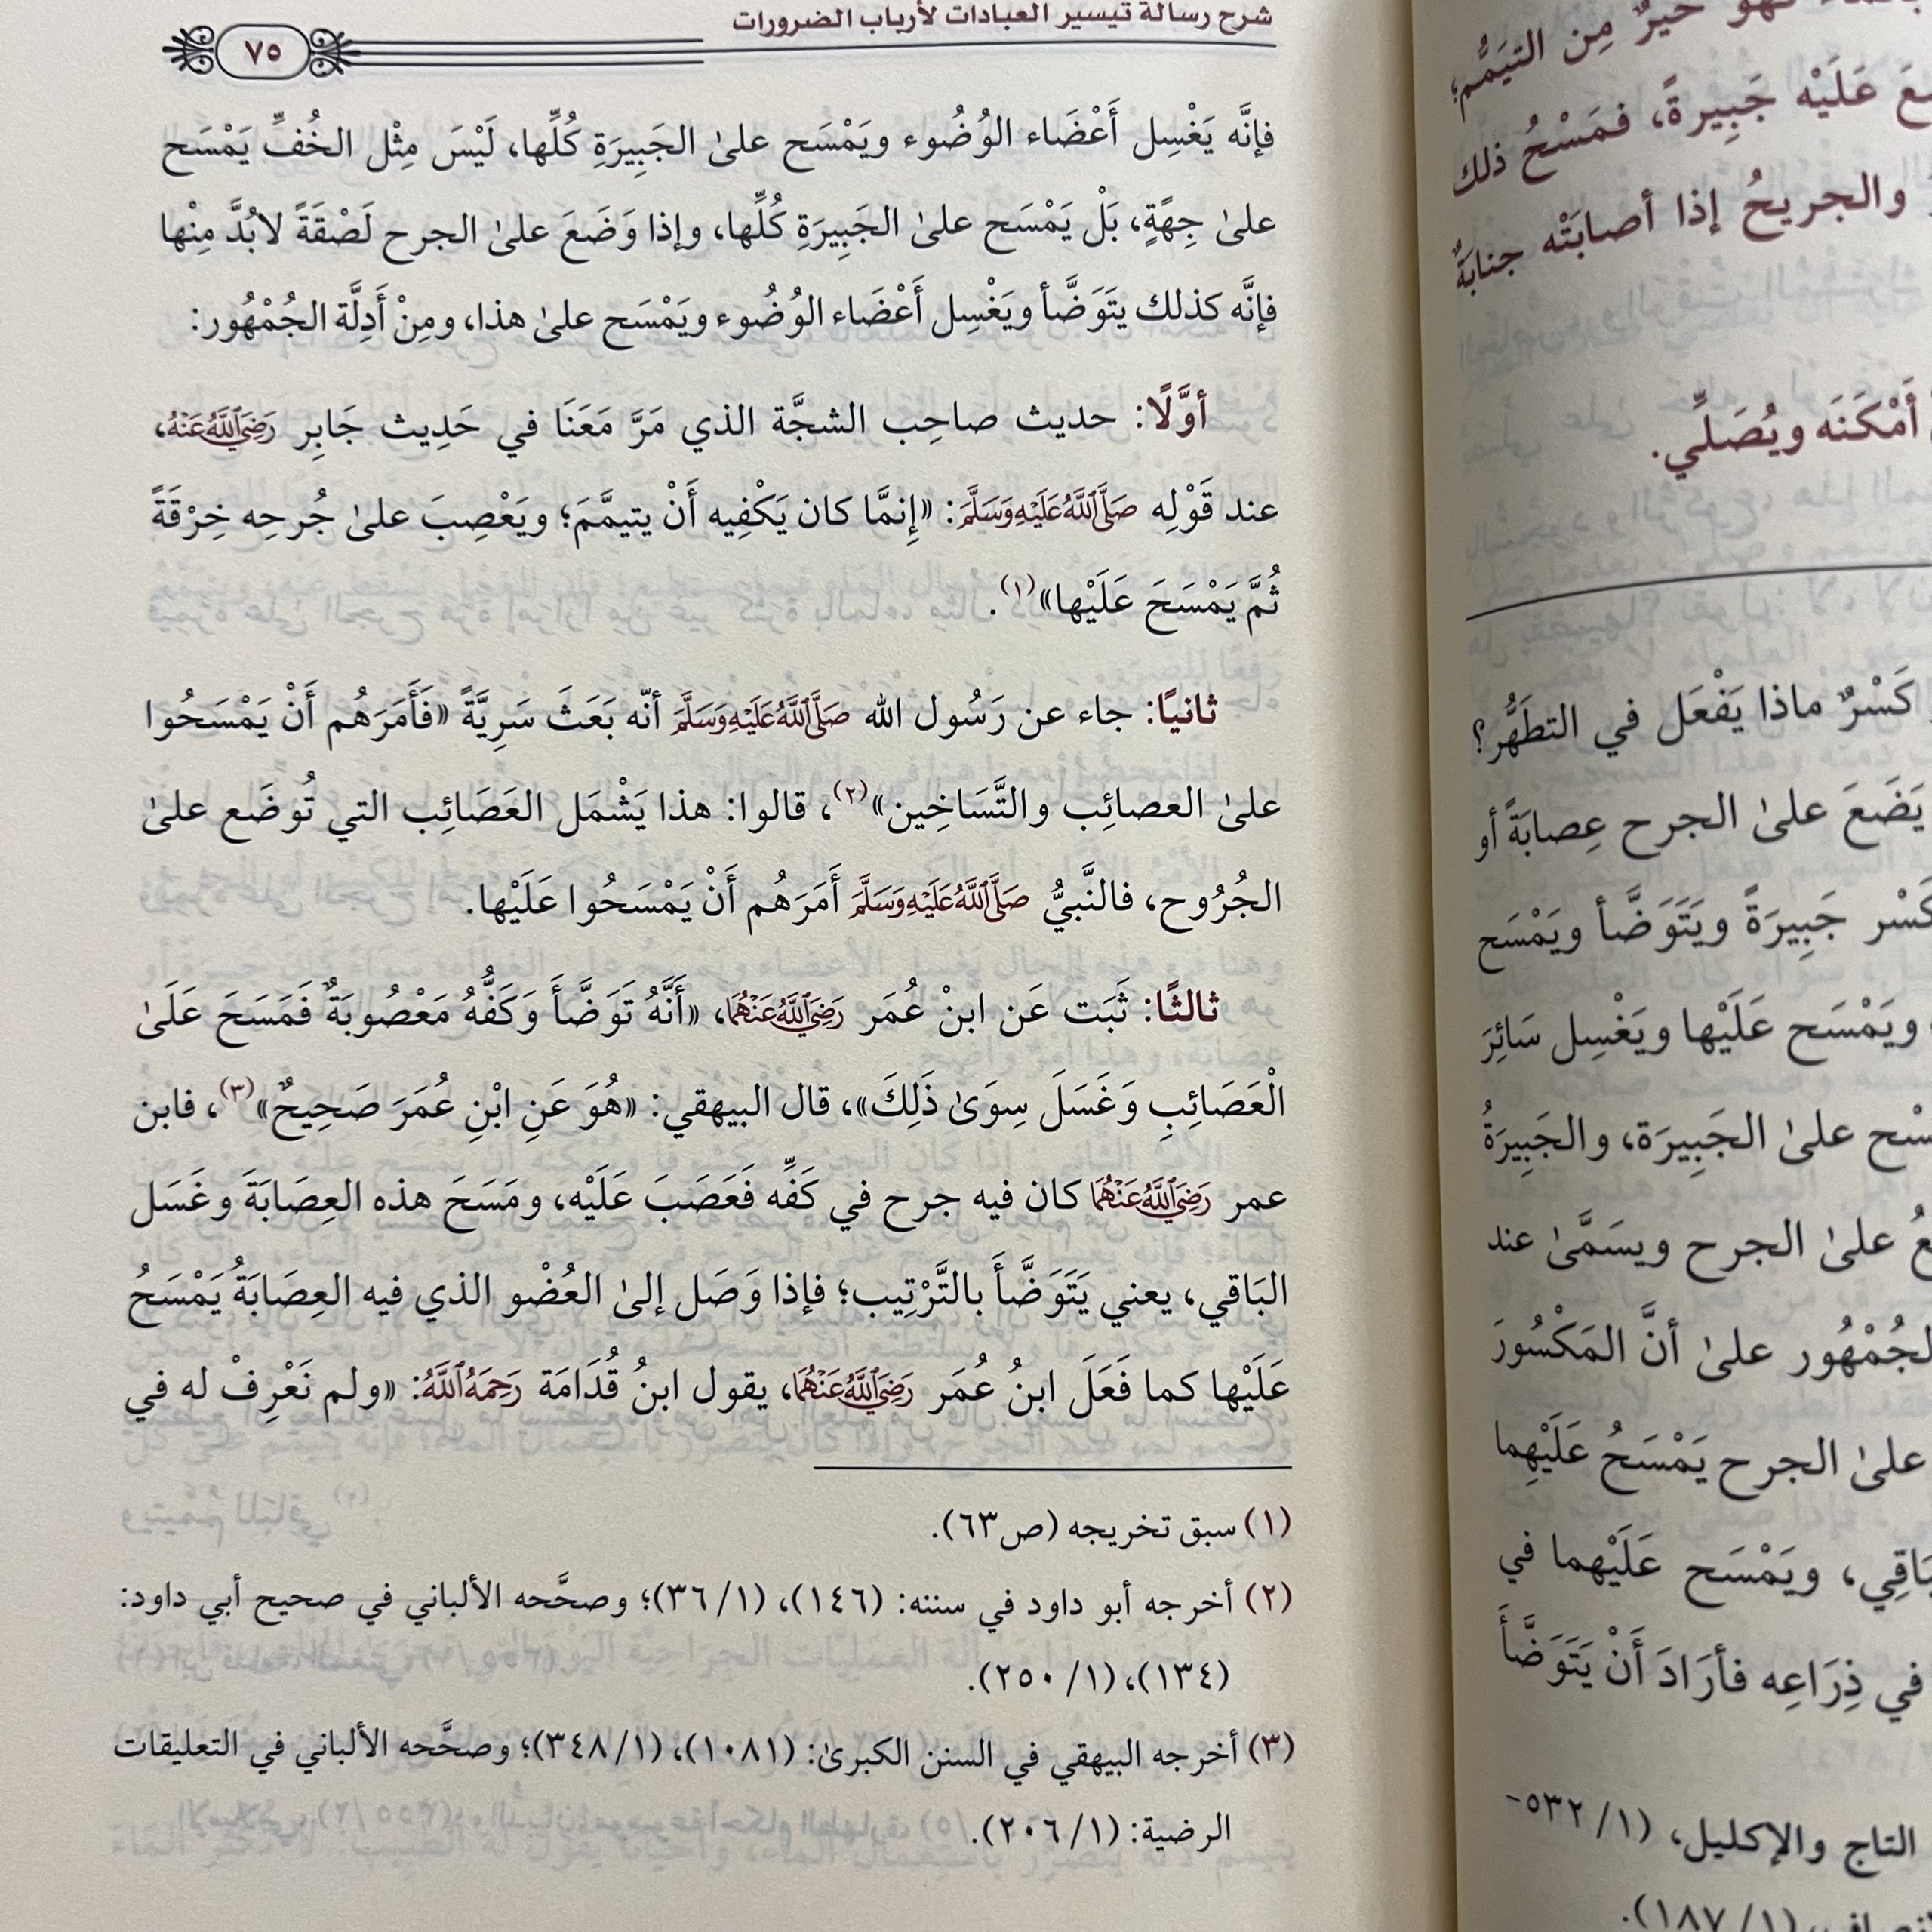 بالماء فهو خيرٌ مِن التيَمُّم؛
عَلَيْه جَبِيرةً، فمَسْحُ ذلك
والجريحُ إذا أصابَتْه جنابَةٌ
أَمْكَنَه ويُصَلِّي.
كَسْرٌ ماذا يَفْعَل في التطَهُّر؟
يَضَعَ علىٰ الجرح عِصابَةً أو
جَبِيرَةً ويَتَوَضَّأ ويَمْسَح
ويَمْسَح عَلَيْها ويَغْسِل سَائِرَ
علىٰ الجَبِيرَة، والجَبِيرَةُ
علىٰ الجرح ويسَمَّىٰ عند
الجُمْهُور علىٰ أنَّ المَكْسُورَ
علىٰ الجرح يَمْسَحُ عَلَيْهِما
ويَمْسَح عَلَيْهما في
في ذِرَاعِه فأرَادَ أَنْ يَتَوَضَّأَ
التاج والإكليل، (١/ ٥٣٢-
(١/ ١٨٧).
شرح رسالة تيسير العبادات لأرباب الضرورات
٧٥
فإنَّه يَغْسِل أَعْضَاء الوُضُوء ويَمْسَح علىٰ الجَبِيرَةِ كُلِّها، لَيْسَ مِثْل الخُفِّ يَمْسَح
علىٰ جِهَةٍ، بَلْ يَمْسَح علىٰ الجَبِيرَةِ كُلِّها، وإذا وَضَعَ علىٰ الجرح لَصْقَةً لابُدَّ مِنْها
فإنَّه كذلك يتَوَضَّأ ويَغْسِل أَعْضَاء الوُضُوء ويَمْسَح علىٰ هذا، ومِنْ أَدِلَّة الجُمْهُور:
أوَّلًا: حديث صاحِب الشجَّة الذي مَرَّ مَعَنَا في حَدِيث جَابِر رَضِيَ اللَّهُ عَنْهُ،
عند قَوْلِه صَلَّى اللَّهُ عَلَيْهِ وَسَلَّمَ: «إِنمَّا كان يَكْفِيه أَنْ يتيمَّمَ؛ ويَعْصِبَ علىٰ جُرحِه خِرْقَةً
ثُمَّ يَمْسَحَ عَلَيْها»(١).
ثانيًا: جاء عن رَسُول الله صَلَّى اللَّهُ عَلَيْهِ وَسَلَّمَ أنّه بَعَثَ سَرِيَّةً «فَأَمَرَهُم أَنْ يَمْسَحُوا
علىٰ العصائِب والتَّسَاخِين»(٢)، قالوا: هذا يَشْمَل العَصَائِب التي تُوضَع علىٰ
الجُرُوح، فالنَّبيُّ صَلَّى اللَّهُ عَلَيْهِ وَسَلَّمَ أَمَرَهُم أَنْ يَمْسَحُوا عَلَيْها.
ثالثًا: ثَبَت عَن ابنْ عُمَر رَضِيَ اللَّهُ عَنْهُمَا، «أَنَّهُ تَوَضَّأَ وَكَفُّهُ مَعْصُوبَةٌ فَمَسَحَ عَلَىٰ
الْعَصَائِبِ وَغَسَلَ سِوَىٰ ذَلِكَ»، قال البيهقي: «هُوَ عَنِ ابْنِ عُمَرَ صَحِيحٌ»(٣)، فابن
عمر رَضِيَ اللَّهُ عَنْهُمَا كان فيه جرح في كَفِّه فَعَصَبَ عَلَيْه، ومَسَحَ هذه العِصَابَةَ وغَسَل
البَاقي، يعني يَتَوَضَّأَ بالتَّرْتِيب؛ فإذا وَصَل إلىٰ العُضْو الذي فيه العِصَابَةُ يَمْسَحُ
عَلَيْها كما فَعَلَ ابنُ عُمَر رَضِيَ اللَّهُ عَنْهُمَا، يقول ابنُ قُدَامَة رَحِمَهُ اللَّهُ: «ولم نَعْرِفْ له في
(١) سبق تخريجه (ص٦٣).
(٢) أخرجه أبو داود في سننه: (١٤٦)، (١/ ٣٦)؛ وصحَّحه الألباني في صحيح أبي داود:
(١٣٤)، (١/ ٢٥٠).
(٣) أخرجه البيهقي في السنن الكبرىٰ: (١٠٨١)، (١/ ٣٤٨)؛ وصحَّحه الألباني في التعليقات
الرضية: (١/ ٢٠٦).